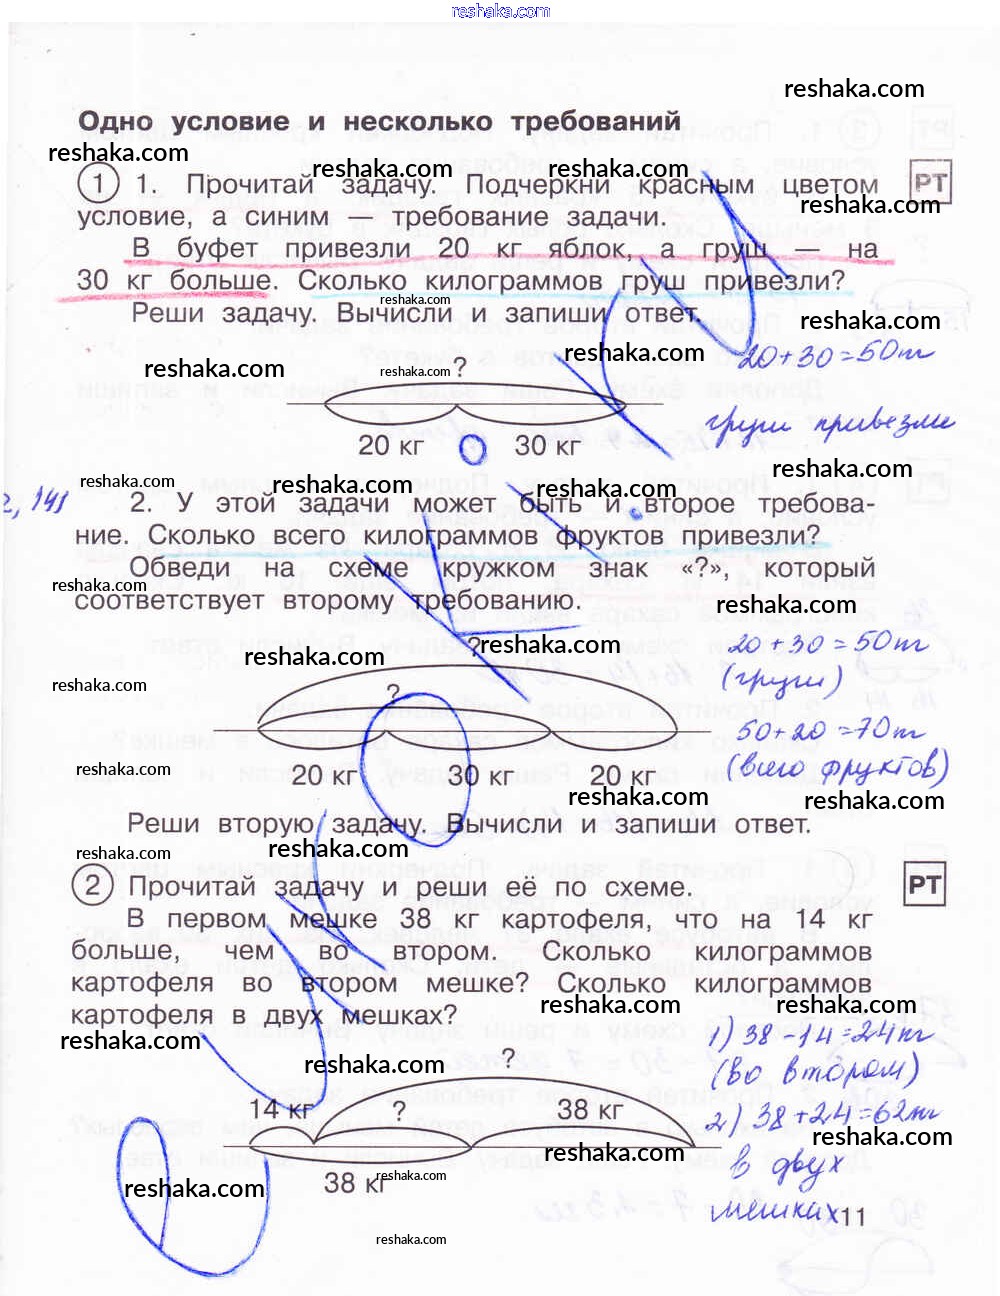 reshaka.com
reshaka.com
Одно условие и несколько требований
reshaka.com
reshaka.com reshaka.com
1 1. Прочитай задачу. Подчеркни красным цветом РТ
reshaka.com
условие, а синим — требование задачи.
В буфет привезли 20 кг яблок, а груш — на
reshaka.com
30 кг больше. Сколько килограммов груш привезли?
reshaka.com
Реши задачу. Вычисли и запиши ответ.
reshaka.com
reshaka.com reshaka.com ? reshaka.com
20+30=50кг
груш привезли
20 кг 30 кг
reshaka.com
reshaka.com reshaka.com reshaka.com
2, 141
2. У этой задачи может быть и второе требова-
ние. Сколько всего килограммов фруктов привезли?
Обведи на схеме кружком знак «?», который
соответствует второму требованию.
reshaka.com
? reshaka.com
20+30=50кг
reshaka.com
(груши)
reshaka.com ?
50+20=70кг
reshaka.com
20 кг 30 кг 20 кг
(всего фруктов)
reshaka.com reshaka.com
Реши вторую задачу. Вычисли и запиши ответ.
reshaka.com reshaka.com
2 Прочитай задачу и реши её по схеме. РТ
В первом мешке 38 кг картофеля, что на 14 кг
больше, чем во втором. Сколько килограммов
картофеля во втором мешке? Сколько килограммов
reshaka.com reshaka.com
картофеля в двух мешках?
reshaka.com
1) 38-14=24кг
? reshaka.com
(во втором)
14 кг ? 38 кг
2) 38+24=62кг
reshaka.com
reshaka.com
в двух
38 кг reshaka.com
reshaka.com
мешках
11
reshaka.com